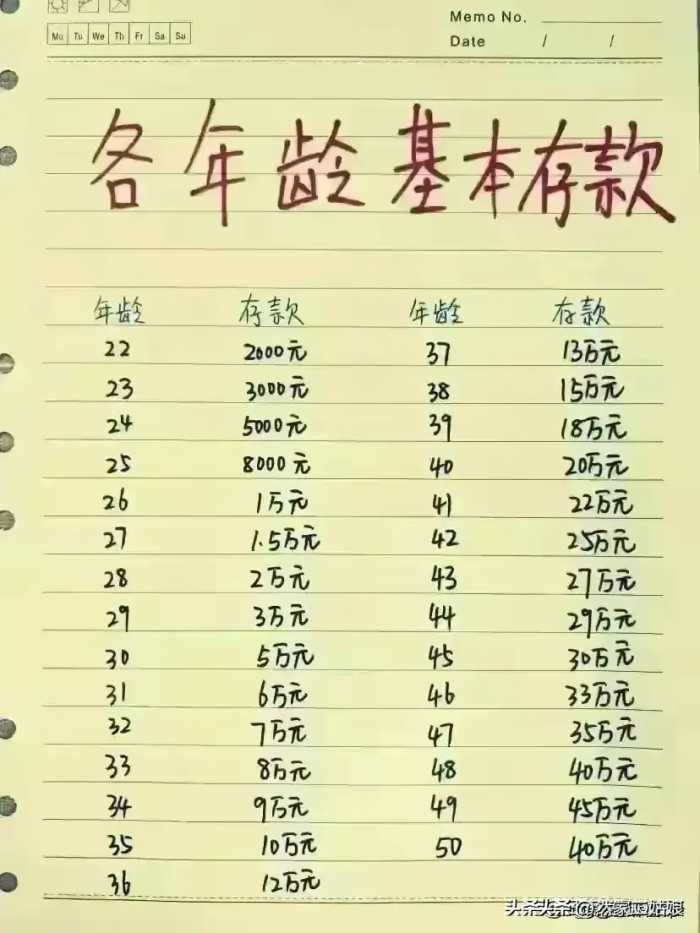 Memo No.
Mo Tu We Th Fr Sa Su
Date / /
各年龄基本存款
年龄 存款 年龄 存款
22 2000元 37 13万元
23 3000元 38 15万元
24 5000元 39 18万元
25 8000元 40 20万元
26 1万元 41 22万元
27 1.5万元 42 25万元
28 2万元 43 27万元
29 3万元 44 29万元
30 5万元 45 30万元
31 6万元 46 33万元
32 7万元 47 35万元
33 8万元 48 40万元
34 9万元 49 45万元
35 10万元 50 40万元
36 12万元
头条 @然家四姑娘